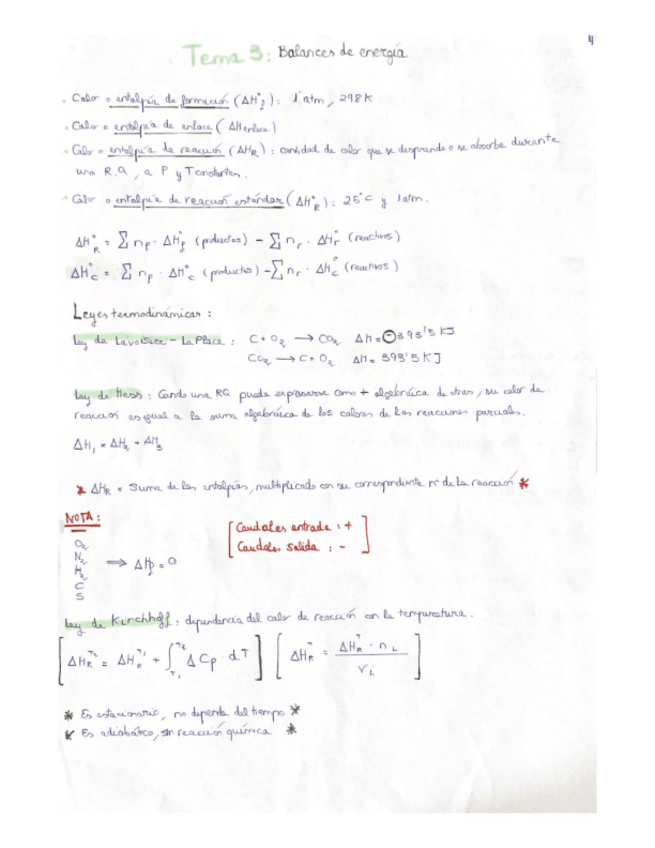 4
Tema 3: Balances de energía
Calor o entalpía de formación (ΔH°f): 1 atm, 298K
Calor o entalpía de enlace (ΔH enlace)
Calor o entalpía de reacción (ΔHR): cantidad de calor que se desprende o se absorbe durante
una R.Q, a P y T constantes.
Calor o entalpía de reacción estándar (ΔH°R): 25°C y 1atm.
ΔH°R = Σ np · ΔH°f (productos) - Σ nr · ΔH°f (reactivos)
ΔH°c = Σ np · ΔH°c (productos) - Σ nr · ΔH°c (reactivos)
Leyes termodinámicas:
Ley de Lavoisier - LaPlace: C + O2 → CO2 ΔH = -393'5 KJ
CO2 → C + O2 ΔH = 393'5 KJ
Ley de Hess: Cando una RQ puede expresarse como + algebráica de otras, su calor de
reacción es igual a la suma algebráica de los calores de las reacciones parciales.
ΔH1 = ΔH2 + ΔH3
* ΔHR = Suma de las entalpías, multiplicado con su correspondiente nº de la reacción *
NOTA:
[Caudales entrada: +
Caudales salida: -]
O2
N2
H2
C
S
⟹ ΔHf = 0
Ley de Kirchhoff: dependencia del calor de reacción con la temperatura.
[ΔHR^T2 = ΔHR^T1 + ∫T1^T2 ΔCp · dT] [ΔHR^T = ΔHR^T · ni / νi]
* Es estacionario, no depende del tiempo *
* Es adiabático, sin reacción química *